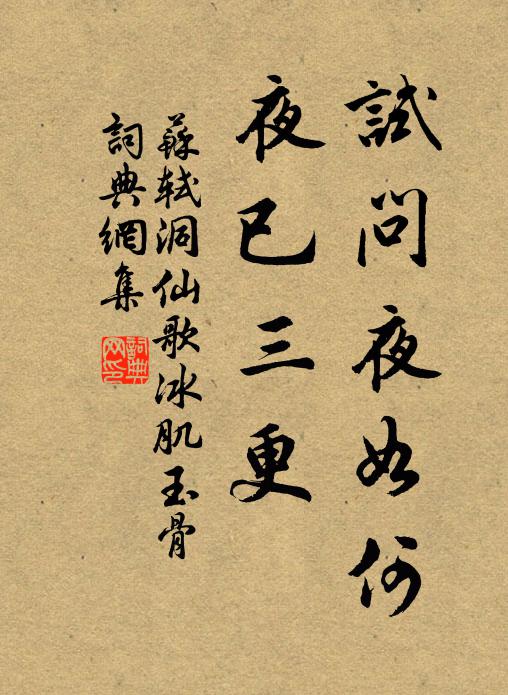 試問夜如何
夜已三更
蘇軾洞仙歌冰肌玉骨
詞典網集
詞典网印